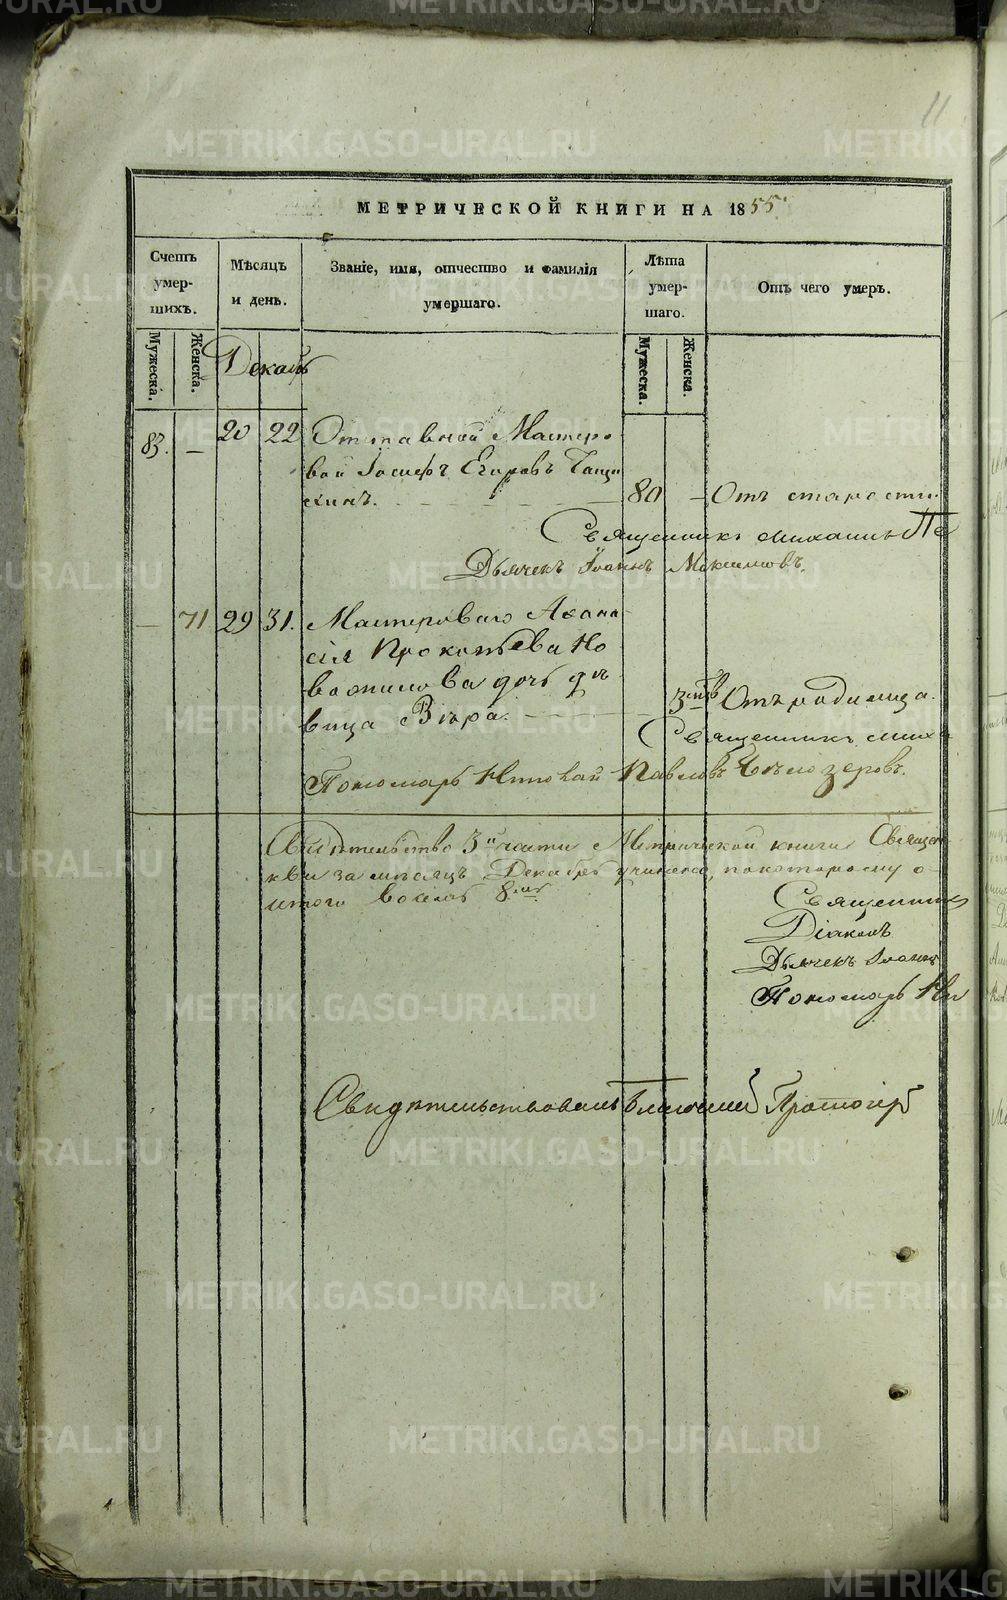 11
МЕТРИЧЕСКОЙ КНИГИ НА 1855.
Счетъ умер-шихъ.
Мѣсяцъ и день.
Званіе, имя, отчество и фамилія умершаго.
Лѣта умер-шаго.
Отъ чего умеръ.
Мужеска.
Женска.
Мужеска.
Женска.
Декабрь
83. — 20 22 Отставной Мастеро
вой Іосифъ Егоровъ
кинъ. 80 — Отъ старости.
Священникъ Михаилъ
Дьячекъ Іоаннъ Максимовъ.
— 71 29 31. Мастероваго Аѳана
сія Прокопьева Но
восилова дочь дѣ
вица Вѣра. Отъ родимца.
Священникъ Миха
Пономарь Николай Павловъ Бѣлозеровъ.
Свидѣтельство 3й части Метрической книги
за мѣсяцъ Декабрь учинено, по которому о
итого 8.
Священник
Діаконъ
Дьячекъ Іоаннъ
Пономарь Ни
Свидѣтельствовалъ Благочин Протоіер
METRIKI.GASO-URAL.RU